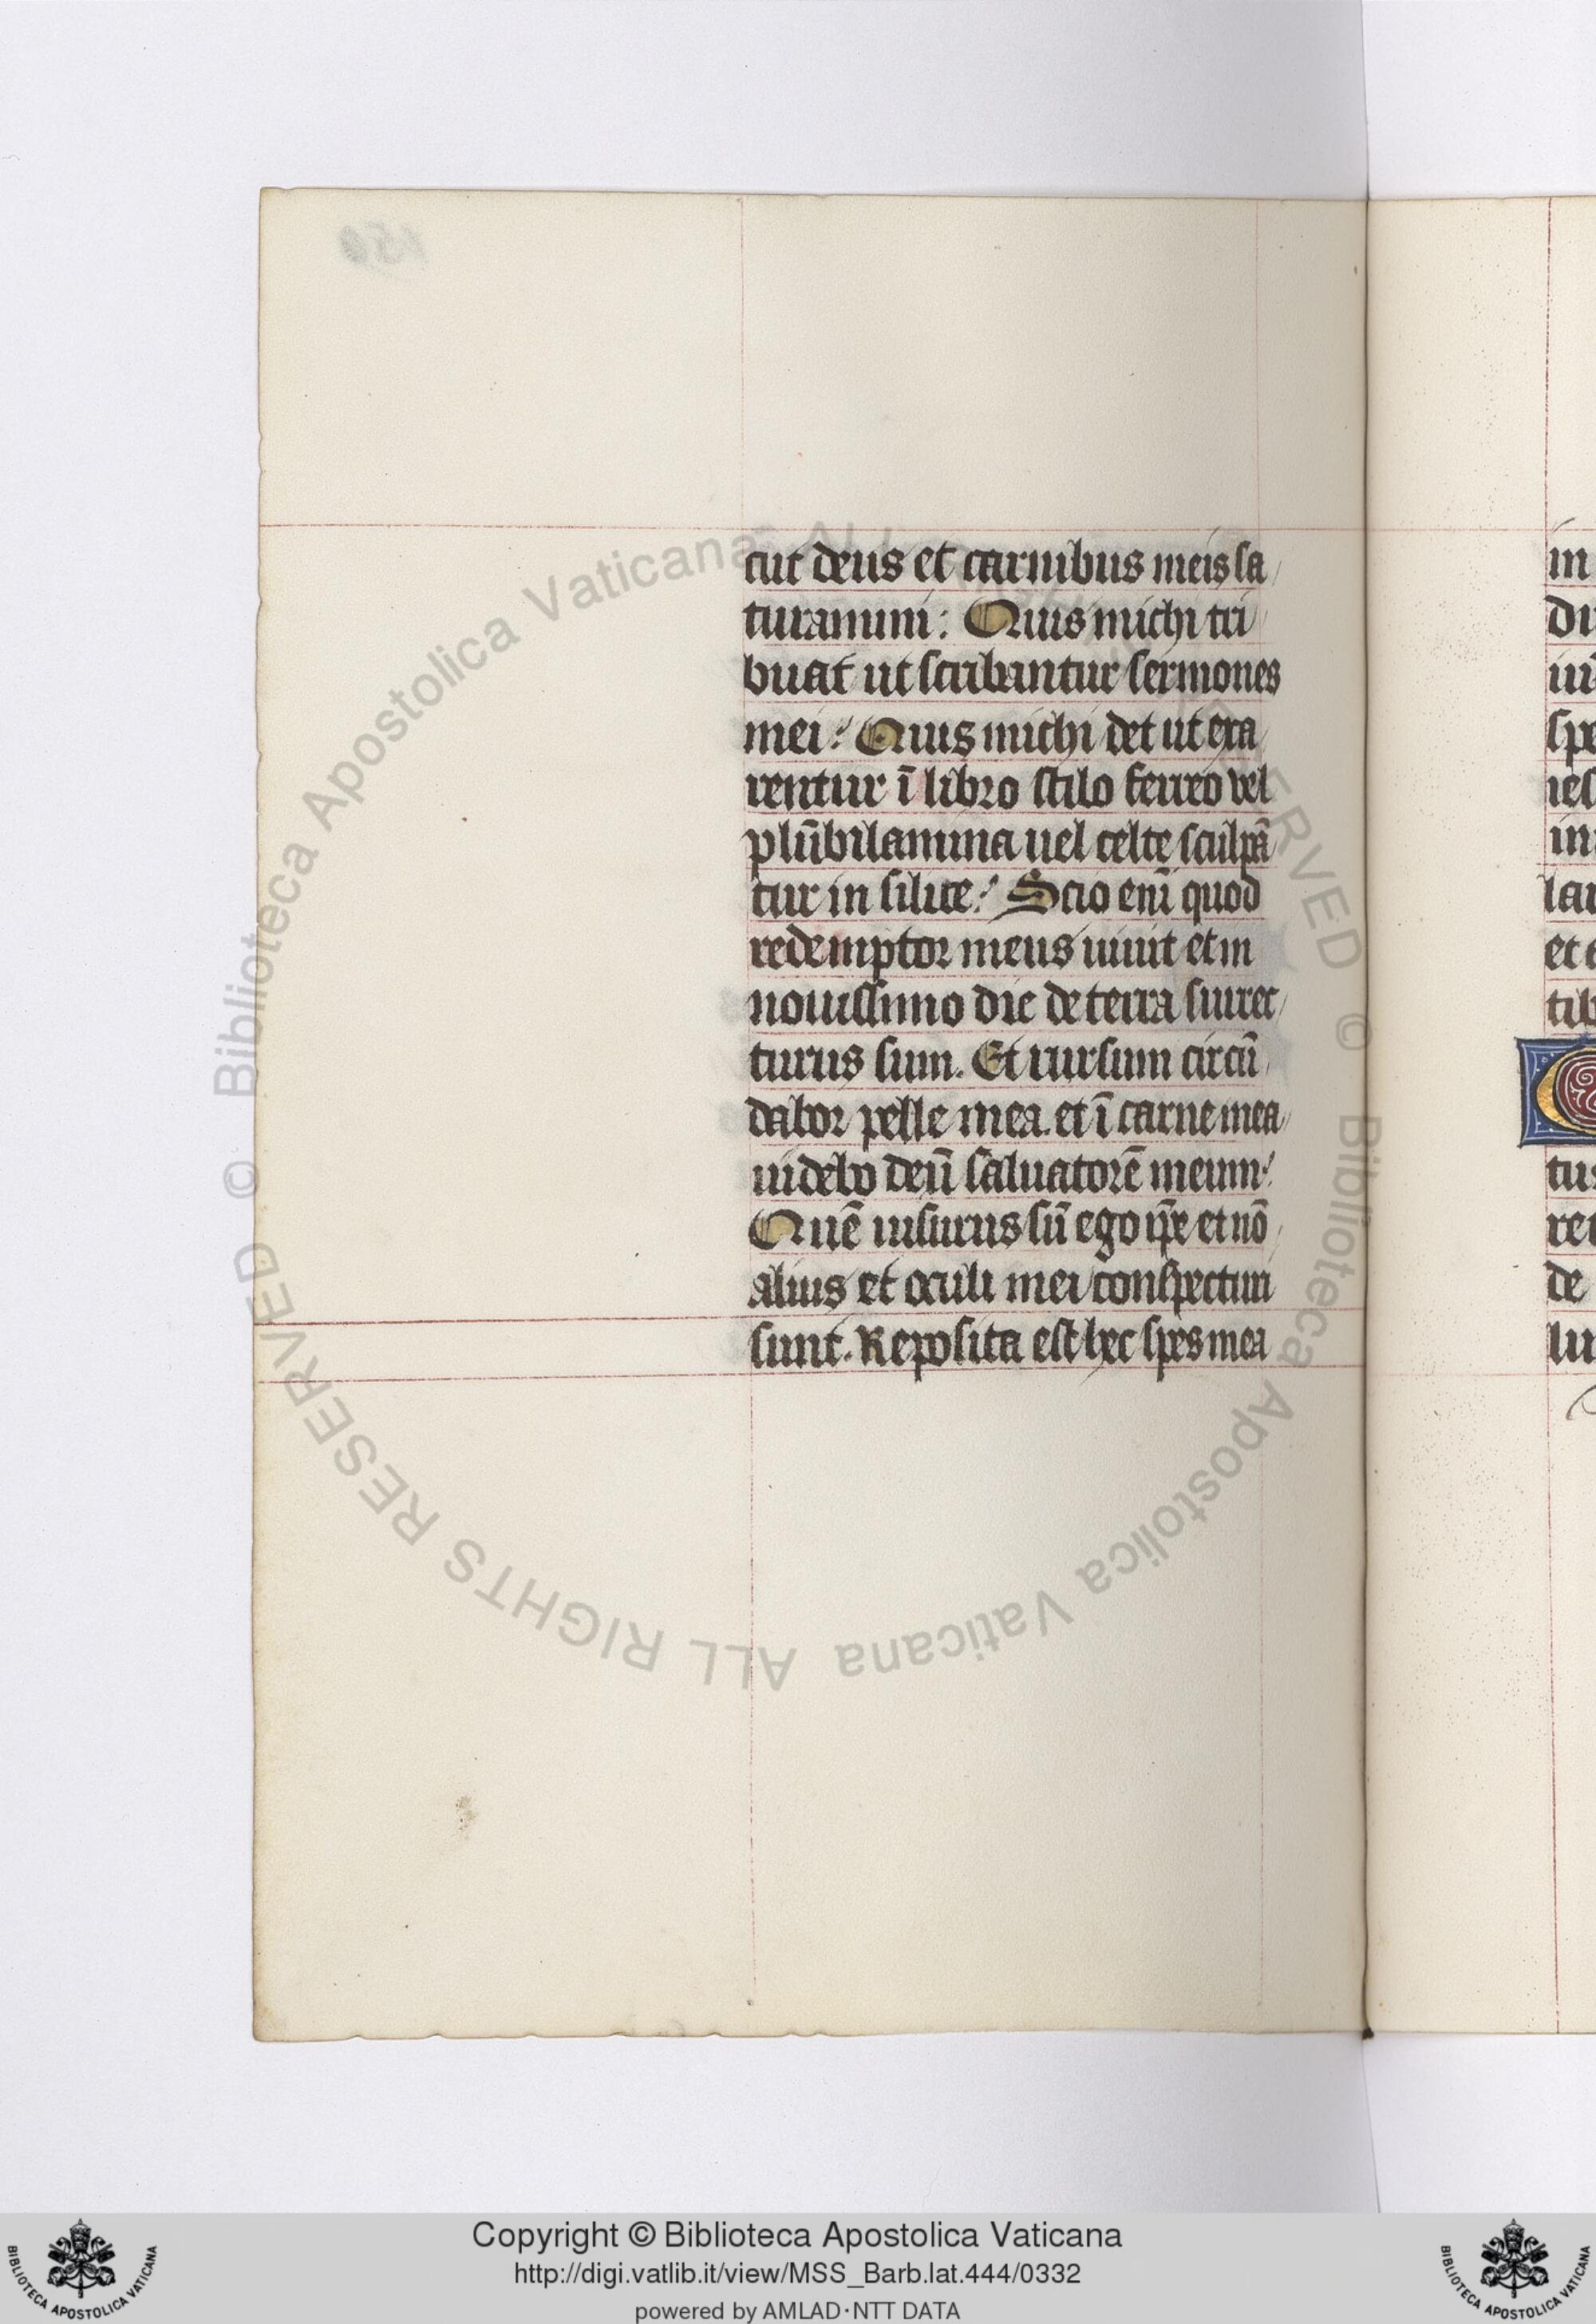 cut deus et carnibus meis sa
turamini: Quis michi tri
buat ut scribantur sermones
mei? Quis michi det ut exa
rentur ī libro stilo ferreo vel
plūbi lamina uel celte sculpā
tur in silice? Scio enī quod
redemptor meus uiuit et in
nouissimo die de terra surrec
turus sum. Et rursum circū
dabor pelle mea. et ī carne mea
uidebo deū saluatorē meum:
Quē uisurus sū ego ip̄e et nō
alius et oculi mei conspecturi
sunt. Reposita est hec spes mea
in
di
spe
ies
in
lar
et
tib
tus
ret
de
lu
150
© Biblioteca Apostolica Vaticana ALL RIGHTS RESERVED © Biblioteca Apostolica Vaticana ALL RIGHTS RESERVED
Copyright © Biblioteca Apostolica Vaticana
http://digi.vatlib.it/view/MSS_Barb.lat.444/0332
powered by AMLAD·NTT DATA
BIBLIOTECA APOSTOLICA VATICANA
BIBLIOTECA APOSTOLICA VATICANA